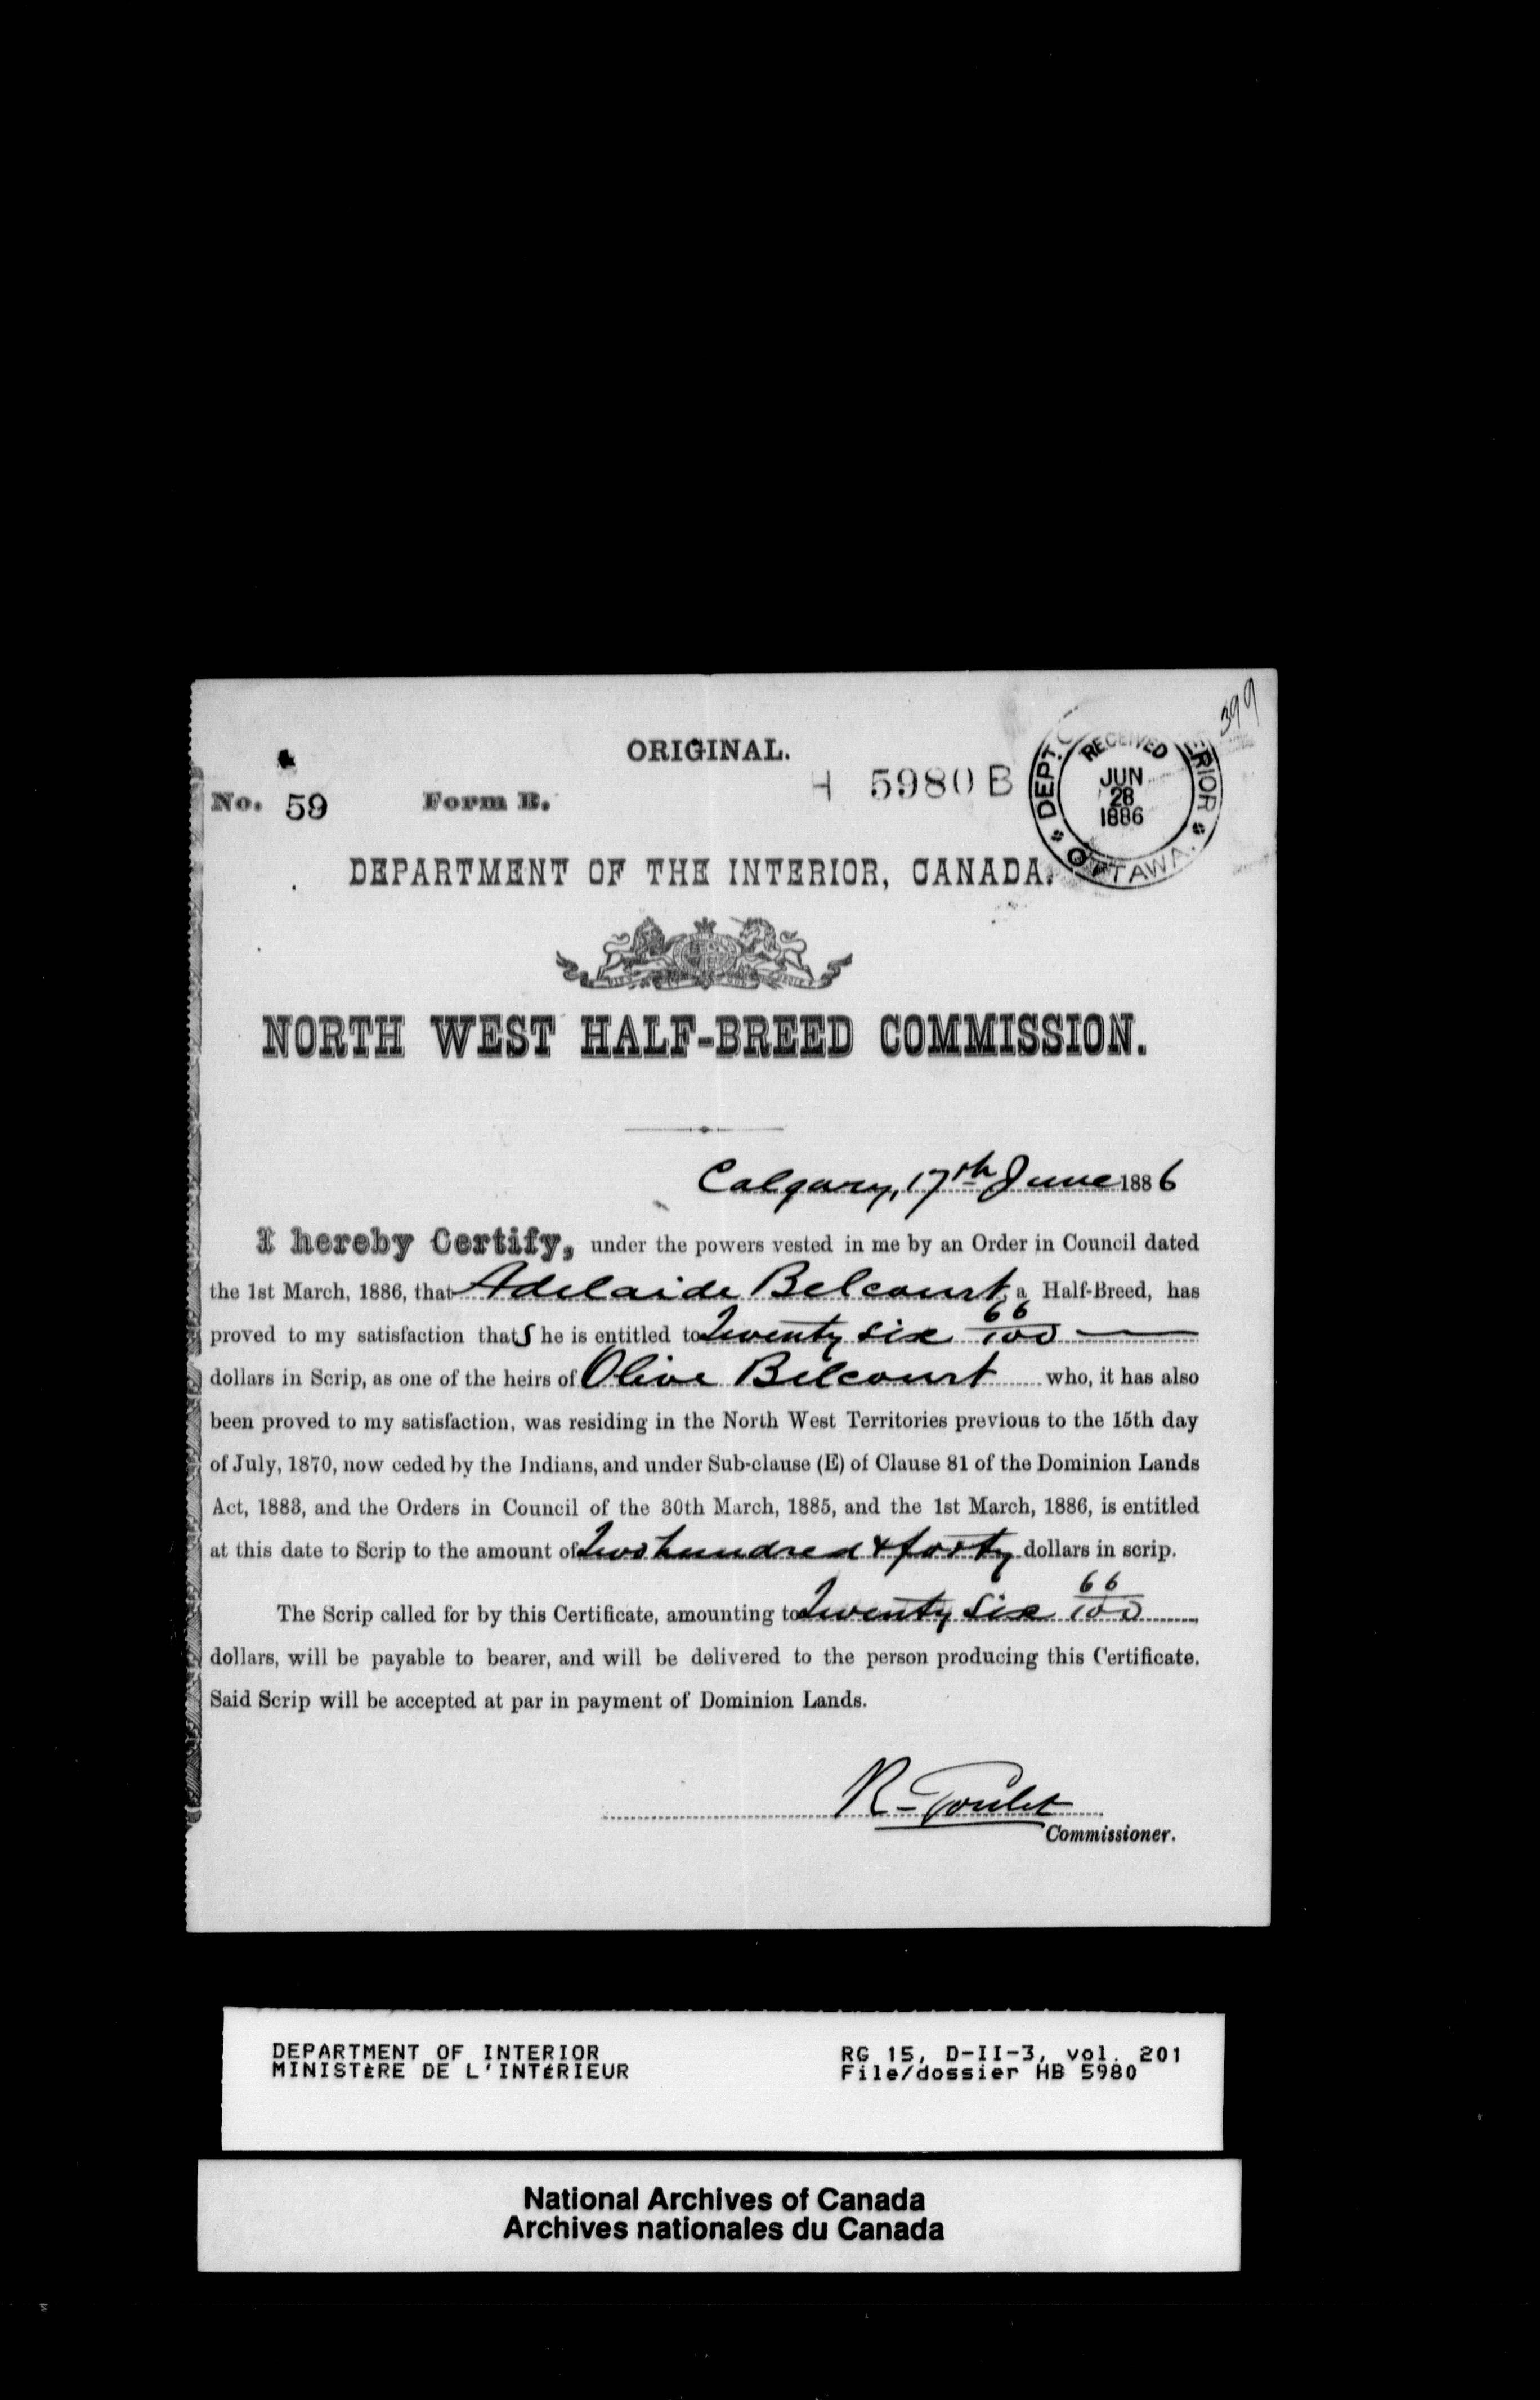 399
ORIGINAL.
No. 59 Form B. H 5980 B
DEPT. ERIOR
RECEIVED
JUN
28
1886
OTTAWA.
DEPARTMENT OF THE INTERIOR, CANADA.
NORTH WEST HALF-BREED COMMISSION.
Calgary, 17th June 1886
I hereby Certify, under the powers vested in me by an Order in Council dated
the 1st March, 1886, that Adelaide Belcourt, a Half-Breed, has
proved to my satisfaction that S he is entitled to Twenty six 66/100
dollars in Scrip, as one of the heirs of Olive Belcourt who, it has also
been proved to my satisfaction, was residing in the North West Territories previous to the 15th day
of July, 1870, now ceded by the Indians, and under Sub-clause (E) of Clause 81 of the Dominion Lands
Act, 1883, and the Orders in Council of the 30th March, 1885, and the 1st March, 1886, is entitled
at this date to Scrip to the amount of Two hundred & forty dollars in scrip.
The Scrip called for by this Certificate, amounting to Twenty six 66/100,
dollars, will be payable to bearer, and will be delivered to the person producing this Certificate.
Said Scrip will be accepted at par in payment of Dominion Lands.
R - Goulet
Commissioner.
DEPARTMENT OF INTERIOR RG 15, D-II-3, vol. 201
MINISTÈRE DE L'INTÉRIEUR File/dossier HB 5980
National Archives of Canada
Archives nationales du Canada